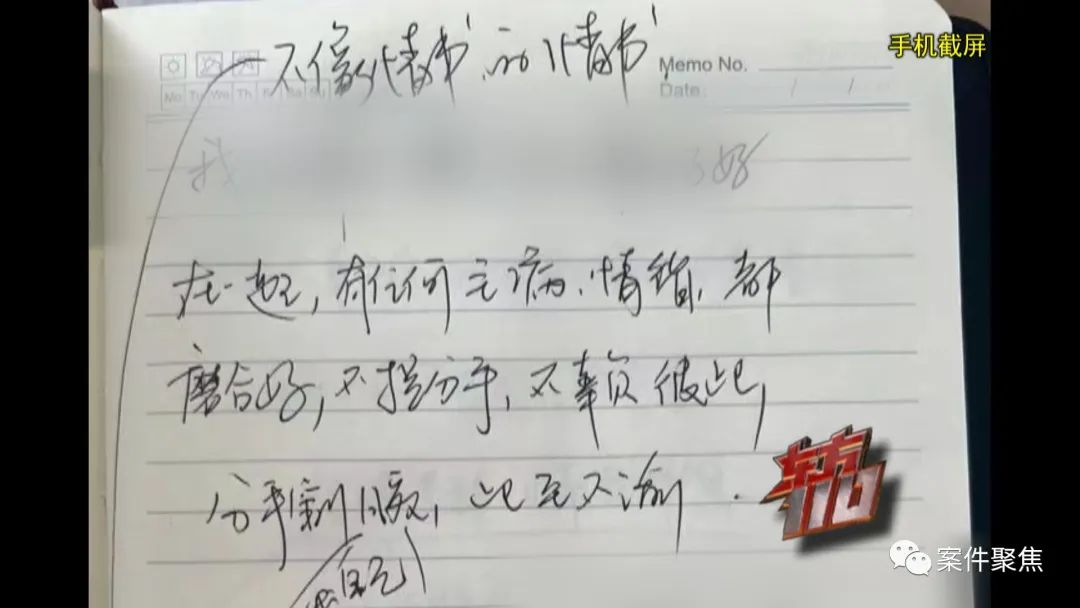 手机截屏
不像'情书'的'情书'
Memo No.
Mo Tu We Th Fr Sa Su
Date / /
我 好
在一起,有任何毛病、情绪、都
磨合好,不提分手,不辜负彼此,
分手 ,此 不渝.
自己
东方110
案件聚焦